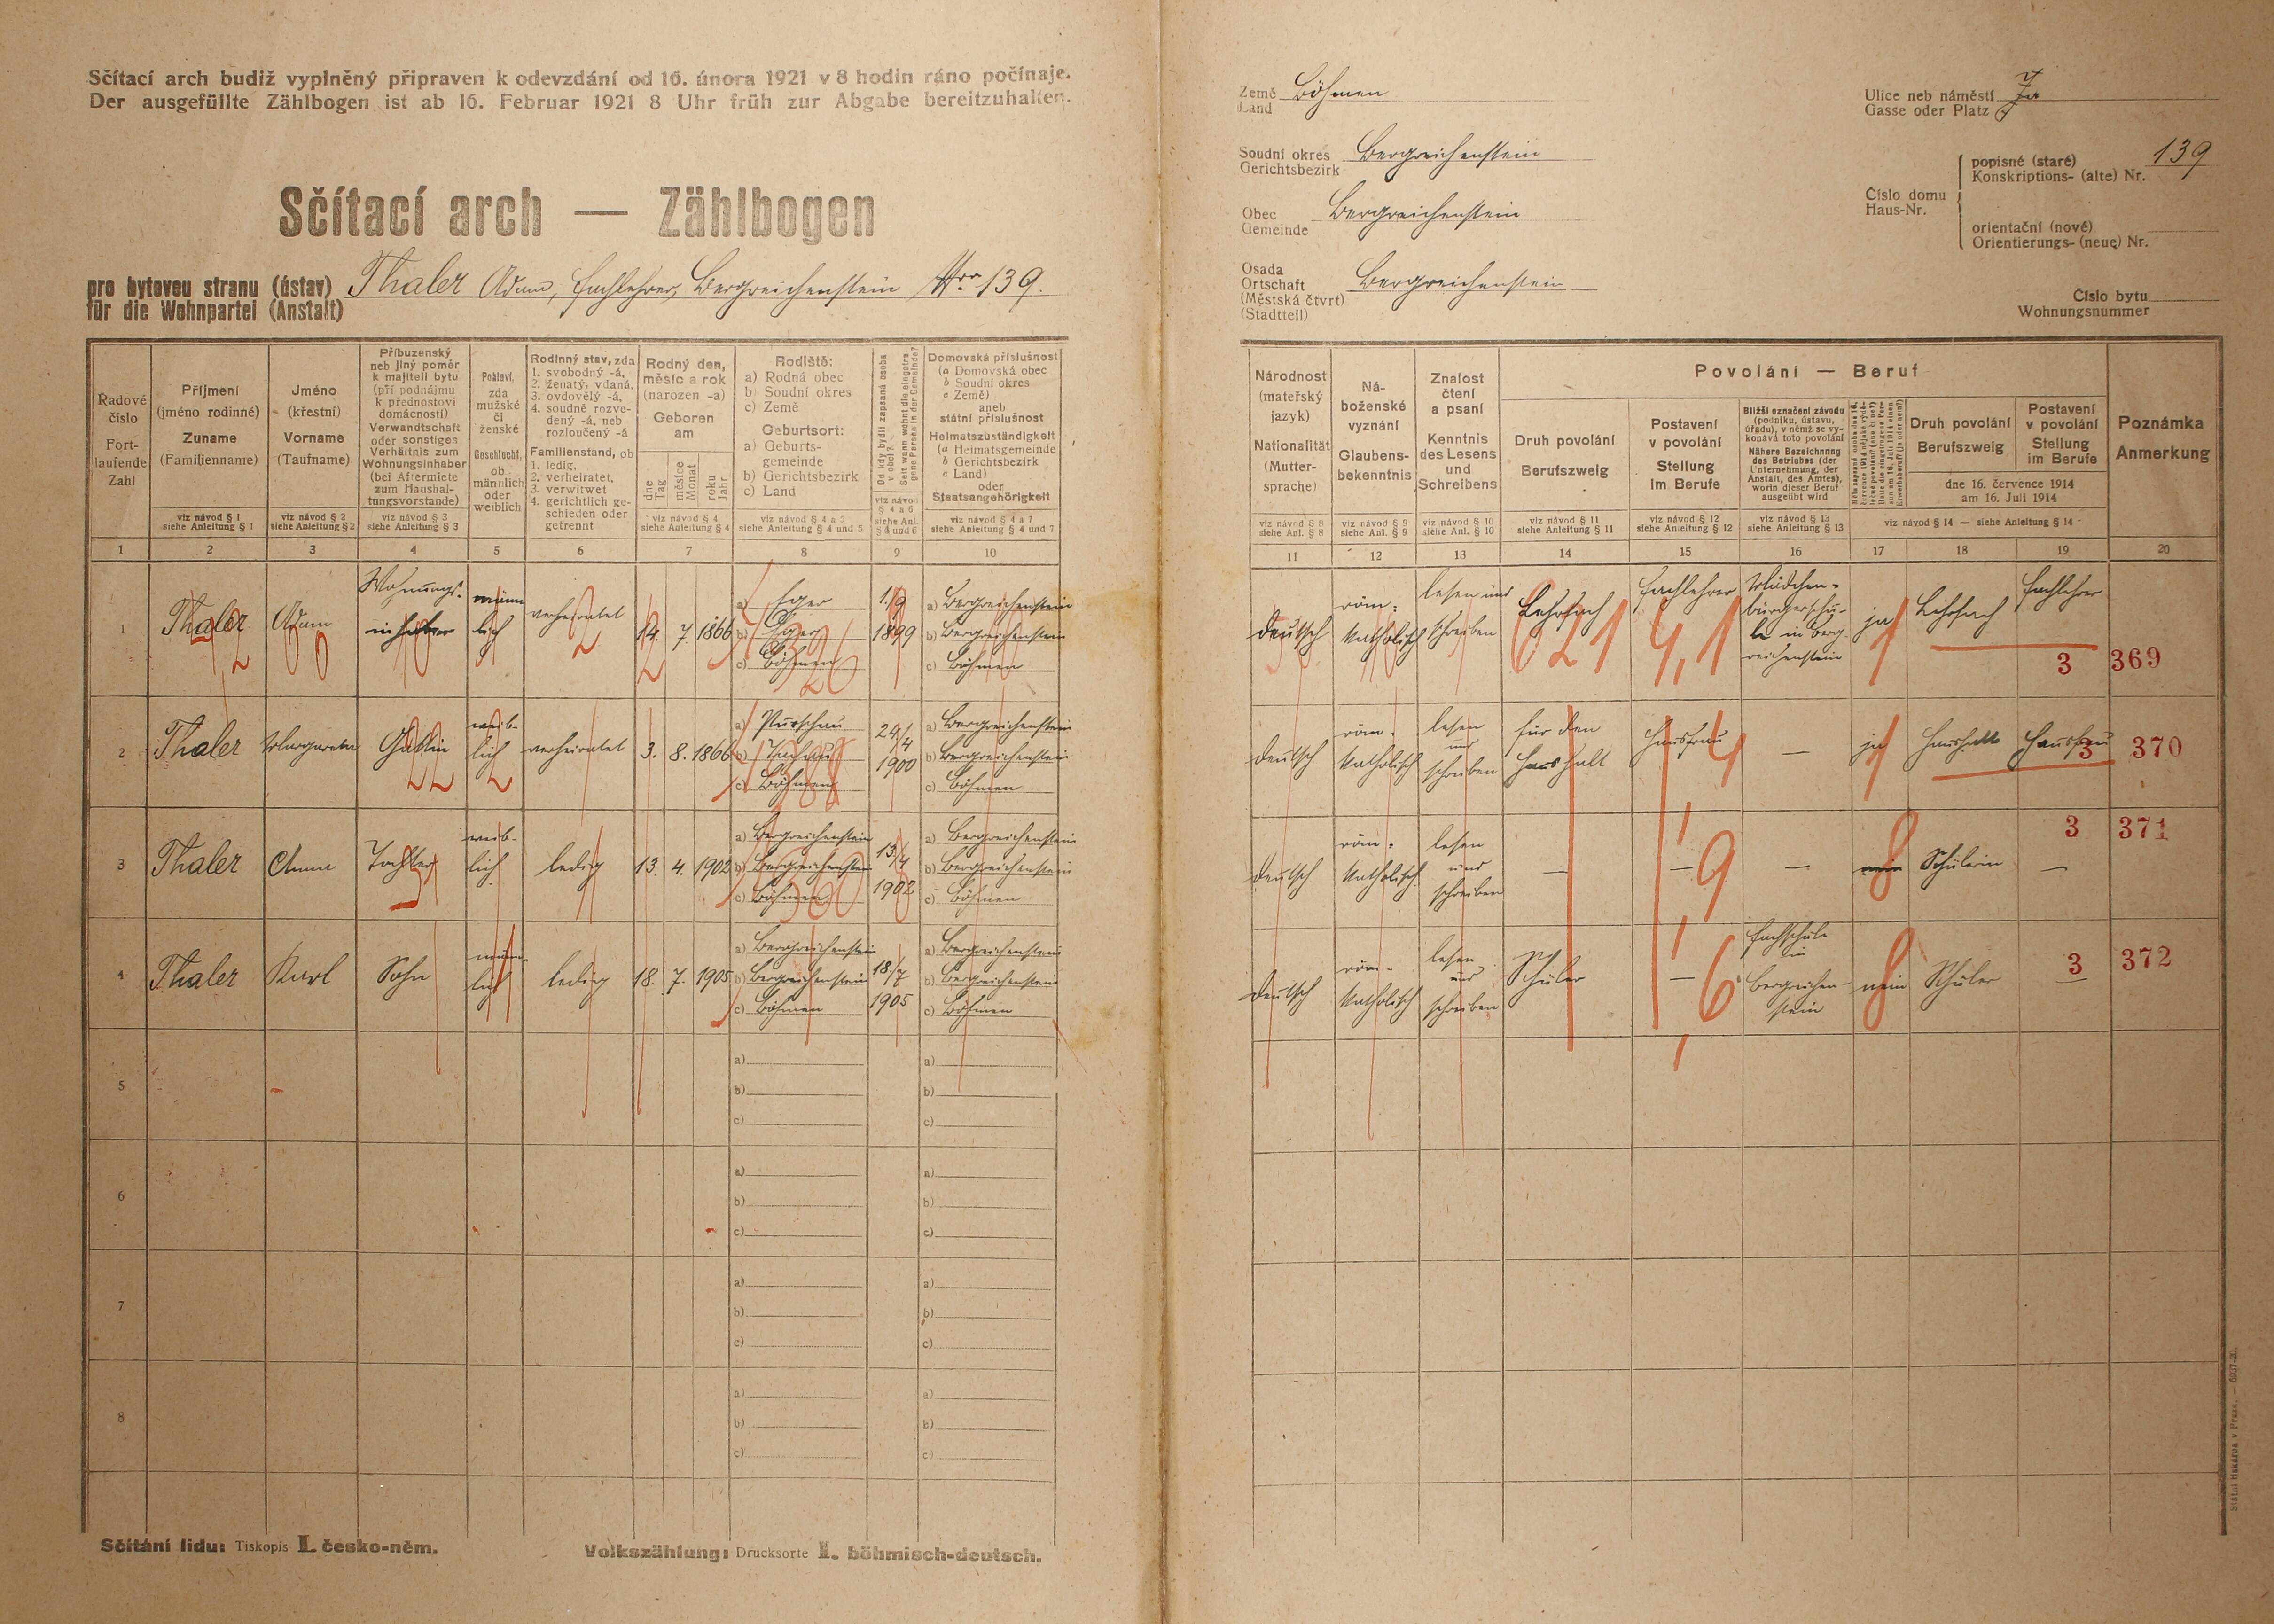 Sčítací arch budiž vyplněný připraven k odevzdání od 16. února 1921 v 8 hodin ráno počínaje.
Der ausgefüllte Zählbogen ist ab 16. Februar 1921 8 Uhr früh zur Abgabe bereitzuhalten.
Sčítací arch — Zählbogen
pro bytovou stranu (ústav)
für die Wohnpartei (Anstalt)
Thaler Adam, Fachlehrer, Bergreichenstein Nro 139.
Země
Land
Böhmen
Soudní okres
Gerichtsbezirk
Bergreichenstein
Obec
Gemeinde
Bergreichenstein
Osada
Ortschaft
(Městská čtvrt)
(Stadtteil)
Bergreichenstein
Ulice neb náměstí
Gasse oder Platz
Číslo domu
Haus-Nr.
popisné (staré)
Konskriptions- (alte) Nr.
139
orientační (nové)
Orientierungs- (neue) Nr.
Číslo bytu
Wohnungsnummer
Řadové
číslo
Fort-
laufende
Zahl
1
Příjmení
(jméno rodinné)
Zuname
(Familienname)
viz návod § 1
siehe Anleitung § 1
2
Jméno
(křestní)
Vorname
(Taufname)
viz návod § 2
siehe Anleitung § 2
3
Příbuzenský
neb jiný poměr
k majiteli bytu
(při podnájmu
k přednostovi
domácnosti)
Verwandtschaft
oder sonstiges
Verhältnis zum
Wohnungsinhaber
(bei Aftermiete
zum Haushal-
tungsvorstande)
viz návod § 3
siehe Anleitung § 3
4
Pohlaví,
zda
mužské
či
ženské
Geschlecht,
ob
männlich
oder
weiblich
5
Rodinný stav, zda
1. svobodný -á,
2. ženatý, vdaná,
3. ovdovělý -á,
4. soudně rozve-
dený -á, neb
rozloučený -á
Familienstand, ob
1. ledig,
2. verheiratet,
3. verwitwet
4. gerichtlich ge-
schieden oder
getrennt
6
Rodný den,
měsíc a rok
(narozen -a)
Geboren
am
dne
Tag
měsíce
Monat
roku
Jahr
viz návod § 4
siehe Anleitung § 4
7
Rodiště:
a) Rodná obec
b) Soudní okres
c) Země
Geburtsort:
a) Geburts-
gemeinde
b) Gerichtsbezirk
c) Land
viz návod § 4 a 5
siehe Anleitung § 4 und 5
8
Od kdy bydlí zapsaná osoba
v obci?
Seit wann wohnt die eingetra-
gene Person in der Gemeinde?
viz návod
§ 4 a 6
siehe Anl.
§ 4 und 6
9
Domovská příslušnost
(a Domovská obec
b Soudní okres
c Země)
aneb
státní příslušnost
Heimatszuständigkeit
(a Heimatsgemeinde
b Gerichtsbezirk
c Land)
oder
Staatsangehörigkeit
viz návod § 4 a 7
siehe Anleitung § 4 und 7
10
Národnost
(mateřský
jazyk)
Nationalität
(Mutter-
sprache)
viz návod § 8
siehe Anl. § 8
11
Ná-
boženské
vyznání
Glaubens-
bekenntnis
viz návod § 9
siehe Anl. § 9
12
Znalost
čtení
a psaní
Kenntnis
des Lesens
und
Schreibens
viz návod § 10
siehe Anl. § 10
13
Povolání — Beruf
Druh povolání
Berufszweig
viz návod § 11
siehe Anleitung § 11
14
Postavení
v povolání
Stellung
im Berufe
viz návod § 12
siehe Anleitung § 12
15
Bližší označení závodu
(podniku, ústavu,
úřadu), v němž se vy-
konává toto povolání
Nähere Bezeichnung
des Betriebes (der
Unternehmung, der
Anstalt, des Amtes),
worin dieser Beruf
ausgeübt wird
viz návod § 13
siehe Anleitung § 13
16
17
Druh povolání
Berufszweig
18
Postavení
v povolání
Stellung
im Berufe
dne 16. července 1914
am 16. Juli 1914
viz návod § 14 — siehe Anleitung § 14
19
Poznámka
Anmerkung
20
1
Thaler
Adam
Wohnungs-
inhaber
männ
lich
verheiratet
14. 7. 1866
a) Eger
b) Eger
c) Böhmen
1./9
1899
a) Bergreichenstein
b) Bergreichenstein
c) Böhmen
deutsch
röm:
katholisch
lesen und
schreiben
Lehrfach
621
Fachlehrer
4,1
Mädchen-
bürgerschu-
le in Berg-
reichenstein
ja
Lehrfach
Fachlehrer
3
369
2
Thaler
Margareta
Gattin
weib-
lich
verheiratet
3. 8. 1866
a) Purschau
b) Tachau
c) Böhmen
24/4
1900
a) Bergreichenstein
b) Bergreichenstein
c) Böhmen
deutsch
röm.
katholisch
lesen
und
schreiben
für den
Haushalt
Hausfrau
4
—
ja
Haushalt
Hausfrau
3
370
3
Thaler
Anna
Tochter
weib-
lich
ledig
13. 4. 1902
a) Bergreichenstein
b) Bergreichenstein
c) Böhmen
13/4
1902
a) Bergreichenstein
b) Bergreichenstein
c) Böhmen
deutsch
röm.
katholisch
lesen
und
schreiben
—
—
9
—
nein
8
Schülerin
—
3
371
4
Thaler
Karl
Sohn
männ-
lich
ledig
18. 7. 1905
a) Bergreichenstein
b) Bergreichenstein
c) Böhmen
18./7
1905
a) Bergreichenstein
b) Bergreichenstein
c) Böhmen
deutsch
röm-
katholisch
lesen
und
schreiben
Schüler
—
6
Fachschule
in
Bergreichen-
stein
nein
8
Schüler
3
372
5
a)
b)
c)
a)
b)
c)
6
a)
b)
c)
a)
b)
c)
7
a)
b)
c)
a)
b)
c)
8
a)
b)
c)
a)
b)
c)
Sčítání lidu: Tiskopis I. česko-něm.
Volkszählung: Drucksorte I. böhmisch-deutsch.